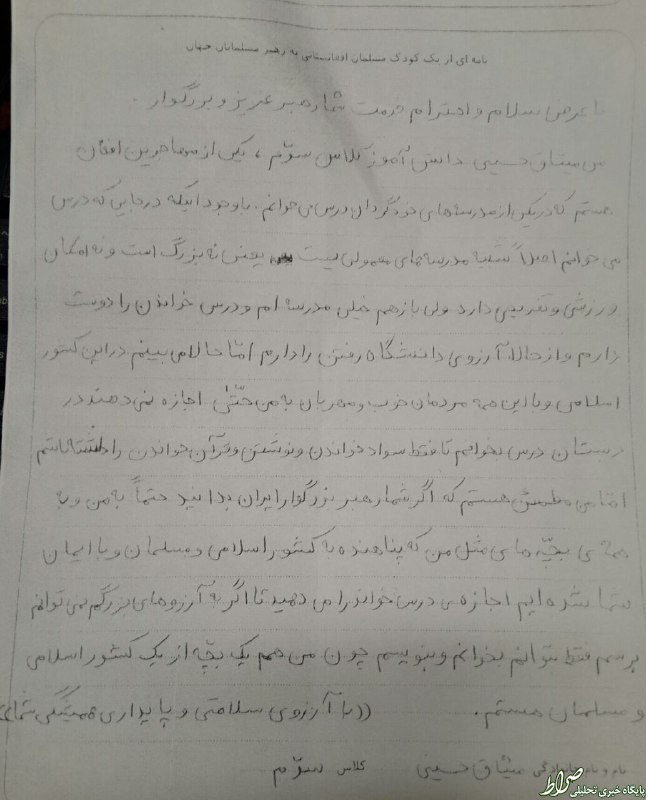 نامه ای از یک کودک مسلمان افغانستانی به رهبر مسلمانان جهان
با عرض سلام و احترام خدمت شما رهبر عزیز و بزرگوار.
من میثاق حسینی دانش آموز کلاس سوّم، یکی از مهاجرین افغان
هستم که در یکی از مدرسه های خودگردان درس می خوانم. با وجود اینکه در جایی که درس
می خوانم اصلاً شبیه مدرسه های معمولی نیست یعنی نه بزرگ است و نه امکان
ورزشی و تفریحی دارد ولی باز هم خیلی مدرسه ام و درس خواندن را دوست
دارم و از حالا آرزوی دانشگاه رفتن را دارم امّا حالا می بینم در این کشور
اسلامی و با این همه مردمان خوب و مهربان به من حتّی اجازه نمی دهند در
دبستان درس بخوانم تا فقط سواد خواندن و نوشتن و قرآن خواندن را داشته باشم
امّا من مطمئن هستم که اگر شما رهبر بزرگوار ایران بدانید حتماً به من و به
همه ی بچّه های مثل من که پناهنده به کشور اسلامی و مسلمان و با ایمان
شما شده ایم اجازه ی درس خواندن را می دهید تا اگر به آرزوهای بزرگم نمی توانم
برسم فقط بتوانم بخوانم و بنویسم چون من هم یک بچّه از یک کشور اسلامی
و مسلمان هستم. ((با آرزوی سلامتی و پایداری همیشگی شما
نام و نام خانوادگی میثاق حسینی کلاس سوّم
صراط
پایگاه خبری تحلیلی